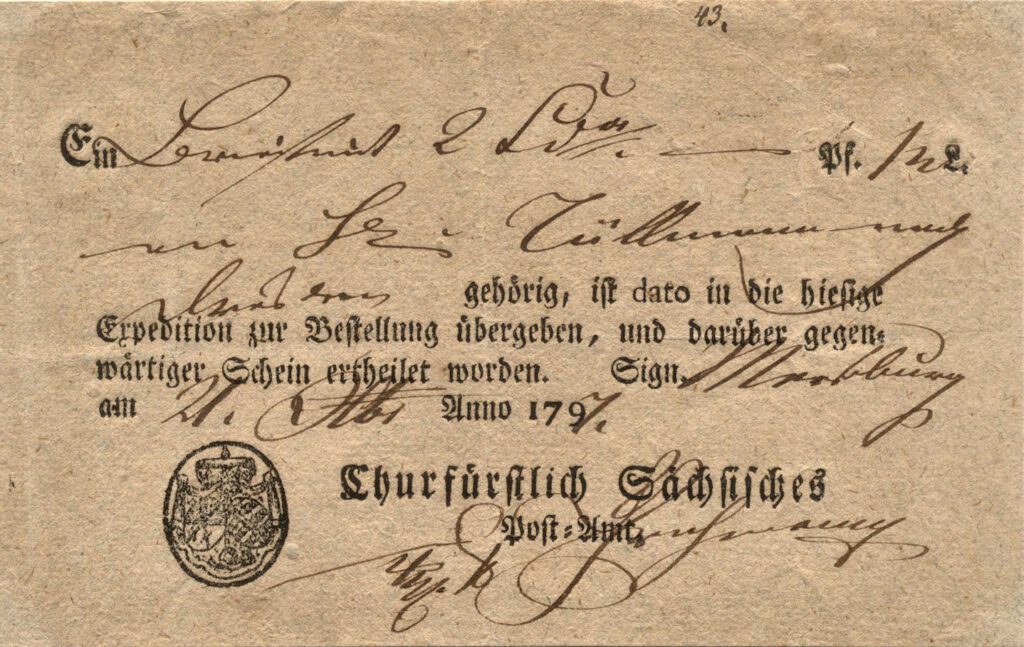 43.
Ein Brief mit 2 Ldrs. — Pf. L.
an H. Tüllmann nach
Dresden gehörig, ist dato in die hiesige
Expedition zur Bestellung übergeben, und darüber gegen-
wärtiger Schein ertheilet worden. Sign. Merseburg
am 21. Anno 1797.
Churfürstlich Sächsisches
Post-Amt.